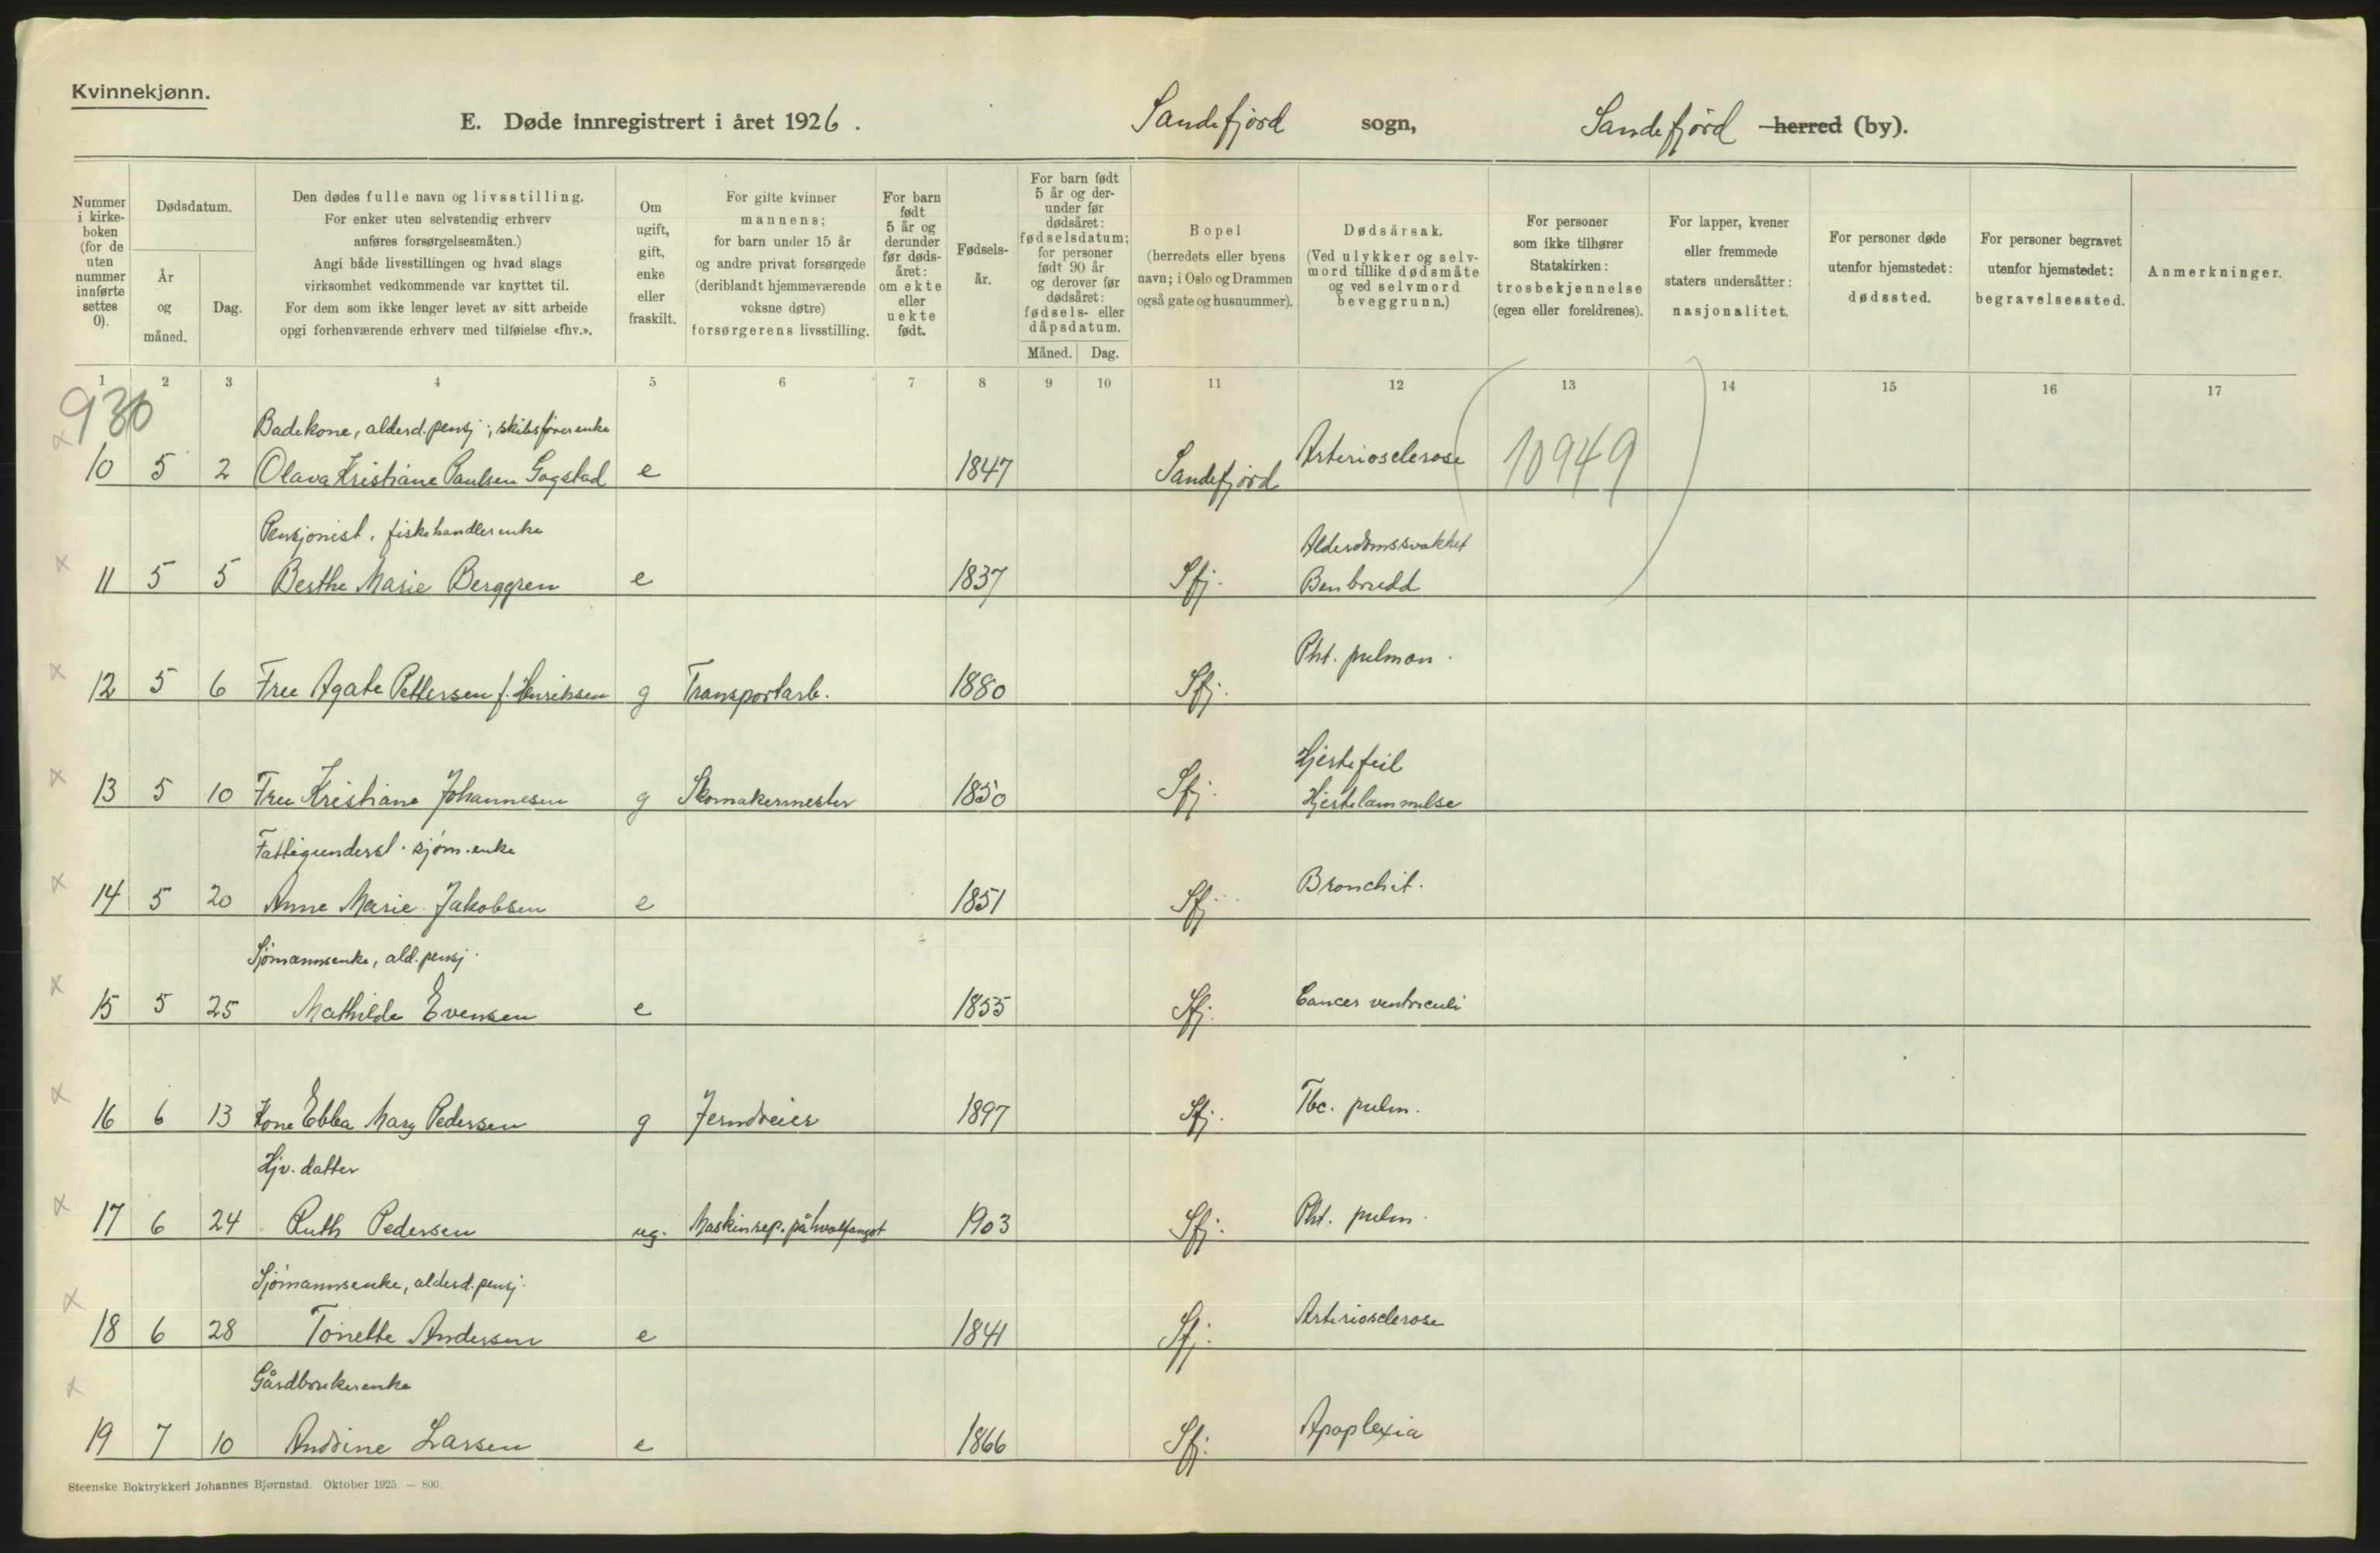 Kvinnekjønn.
E. Døde innregistrert i året 1926. Sandefjord sogn, Sandefjord herred (by).
Nummer
i kirke-
boken
(for de
uten
nummer
innførte
settes
0).
Dødsdatum.
År
og
måned.
Dag.
Den dødes fulle navn og livsstilling.
For enker uten selvstendig erhverv
anføres forsørgelsesmåten.)
Angi både livsstillingen og hvad slags
virksomhet vedkommende var knyttet til.
For dem som ikke lenger levet av sitt arbeide
opgi forhenværende erhverv med tilføielse «fhv.».
Om
ugift,
gift,
enke
eller
fraskilt.
For gifte kvinner
mannens;
for barn under 15 år
og andre privat forsørgede
(deriblandt hjemmeværende
voksne døtre)
forsørgerens livsstilling.
For barn
født
5 år og
derunder
før døds-
året:
om ekte
eller
uekte
født.
Fødsels-
år.
For barn født
5 år og der-
under før
dødsåret:
fødselsdatum;
for personer
født 90 år
og derover før
dødsåret:
fødsels- eller
dåpsdatum.
Måned. Dag.
Bopel
(herredets eller byens
navn; i Oslo og Drammen
også gate og husnummer).
Dødsårsak.
(Ved ulykker og selv-
mord tillike dødsmåte
og ved selvmord
beveggrunn.)
For personer
som ikke tilhører
Statskirken:
trosbekjennelse
(egen eller foreldrenes).
For lapper, kvener
eller fremmede
staters undersåtter:
nasjonalitet.
For personer døde
utenfor hjemstedet:
dødssted.
For personer begravet
utenfor hjemstedet:
begravelsessted.
Anmerkninger.
1 2 3 4 5 6 7 8 9 10 11 12 13 14 15 16 17
930
Badekone, alderd.pensj; skibsførerenke
10 5 2 Olava Kristiane Paulsen Gogstad e 1847 Sandefjord Arteriosclerose (10949)
Pensjonist, fiskehandlerenke
Alderdomssvakhet
11 5 5 Berthe Marie Berggren e 1837 Sfj. Benbrudd
Pht. pulmon.
12 5 6 Fru Agate Pettersen f. Henriksen g Transportarb. 1880 Sfj.
Hjertefeil
13 5 10 Fru Kristiane Johannesen g Skomakermester 1850 Sfj. Hjertelammelse
Fattigunderst. sjøm.enke
14 5 20 Anne Marie Jakobsen e 1851 Sfj. Bronchit.
Sjømannsenke, ald.pensj.
15 5 25 Mathilde Evensen e 1855 Sfj. Cancer ventriculi
16 6 13 Kone Ebba Mary Pedersen g Jerndreier 1897 Sfj. Tbc. pulm.
Hjv. datter
17 6 24 Ruth Pedersen ug. Maskinrep. på hvalfangst 1903 Sfj. Pht. pulm.
Sjømannsenke, alderd.pensj.
18 6 28 Tonette Andersen e 1841 Sfj. Arteriosclerose
Gårdbrukerenke
19 7 10 Andrine Larsen e 1866 Sfj. Apoplexia
Steenske Boktrykkeri Johannes Bjørnstad. Oktober 1925. — 800.